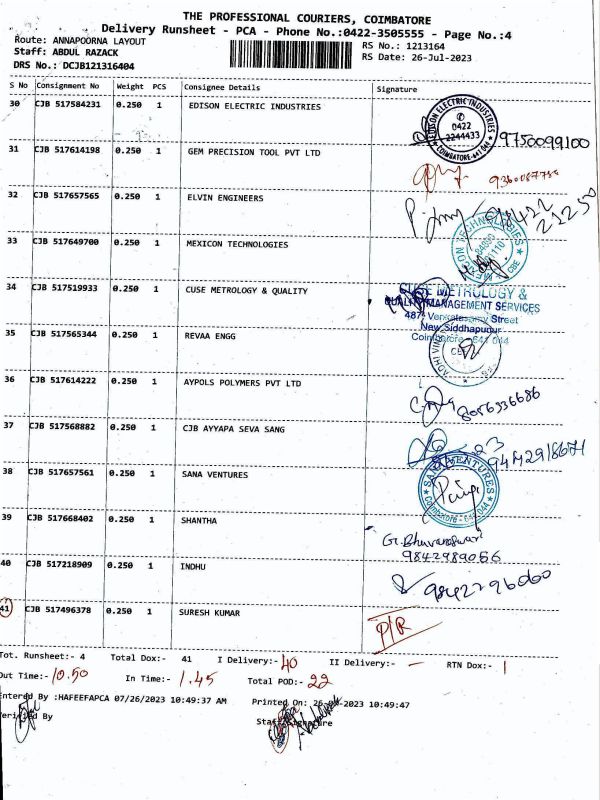 THE PROFESSIONAL COURIERS, COIMBATORE
Delivery Runsheet - PCA - Phone No.:0422-3505555 - Page No.:4
Route: ANNAPOORNA LAYOUT RS No.: 1213164
Staff: ABDUL RAZACK RS Date: 26-Jul-2023
DRS No.: DCJB121316404
S No Consignment No Weight PCS Consignee Details Signature
30 CJB 517584231 0.250 1 EDISON ELECTRIC INDUSTRIES
EDISON ELECTRIC INDUSTRIES
0422
2244433
COIMBATORE-641 044
9750099100
31 CJB 517614198 0.250 1 GEM PRECISION TOOL PVT LTD
32 CJB 517657565 0.250 1 ELVIN ENGINEERS
33 CJB 517649700 0.250 1 MEXICON TECHNOLOGIES
34 CJB 517519933 0.250 1 CUSE METROLOGY & QUALITY
CUSE METROLOGY &
QUALITY MANAGEMENT SERVICES
Street
New Siddhapudur
Coimbatore - 641 044
35 CJB 517565344 0.250 1 REVAA ENGG
36 CJB 517614222 0.250 1 AYPOLS POLYMERS PVT LTD
8056336686
37 CJB 517568882 0.250 1 CJB AYYAPA SEVA SANG
38 CJB 517657561 0.250 1 SANA VENTURES
SANA VENTURES
Coimbatore - 641 044
39 CJB 517668402 0.250 1 SHANTHA
G. Bhuvaneshwari
9842989056
40 CJB 517218909 0.250 1 INDHU
9842296060
41 CJB 517496378 0.250 1 SURESH KUMAR
P/R
Tot. Runsheet:- 4 Total Dox:- 41 I Delivery:- 40 II Delivery:- — RTN Dox:- 1
Out Time:- 10.50 In Time:- 1.45 Total POD:- 22
Entered By :HAFEEFAPCA 07/26/2023 10:49:37 AM Printed On: 26- -2023 10:49:47
Verified By Staff Signature